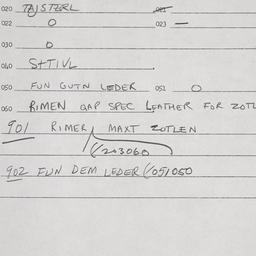 020 TAJSTZRL 021
022 0 023 —
030 0
040 S+TIVL
050 FUN GUTN LEDER 051 0
060 RIMEN GAP SPEC LEATHER FOR ZOTL
901 RIMER MAXT ZOTLEN
(/203060
902 FUN DEM LEDER (/051050